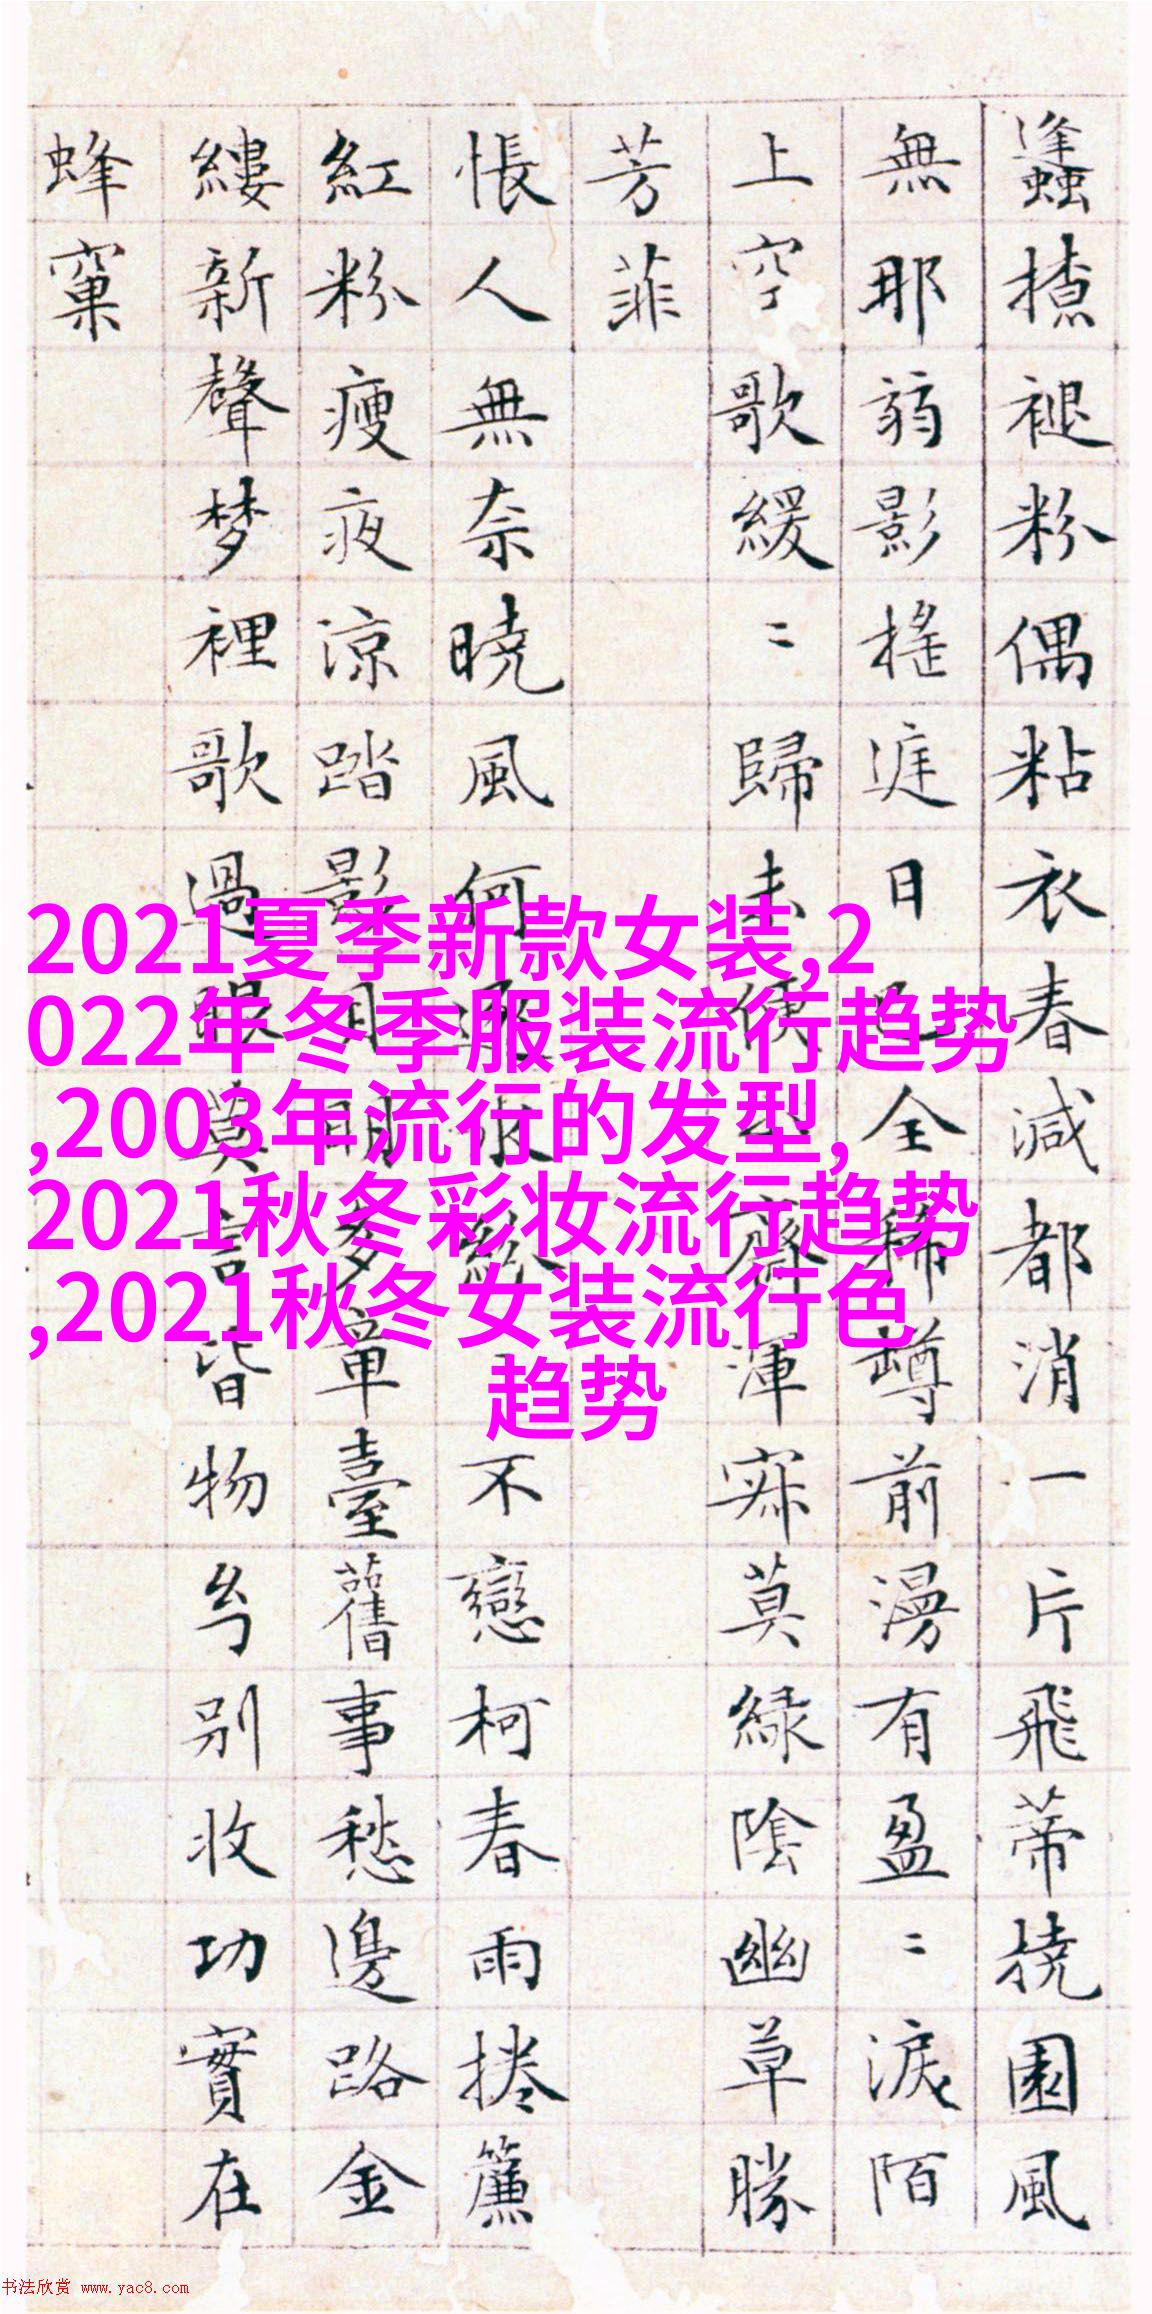 蠭撩褪粉偶粘衣春減都消一片飛蒂撓園風
無那弱影搖庭日已全稀樽前漫有盈〻淚陌
上空歌緩〻歸未便小齋渾寂莫綠陰幽草勝
芳菲
悵人無奈曉風何逐水紛〻不戀柯春雨捲簾
紅粉瘦夜涼踏影月明多章臺舊事愁邊路金
縷新聲梦裡歌過眼莫言皆物幻别收功實在
蜂窠
2021夏季新款女装,2
022年冬季服装流行趋势
,2003年流行的发型,
2021秋冬彩妆流行趋势
,2021秋冬女装流行色
趋势
书法欣赏 www.yac8.com